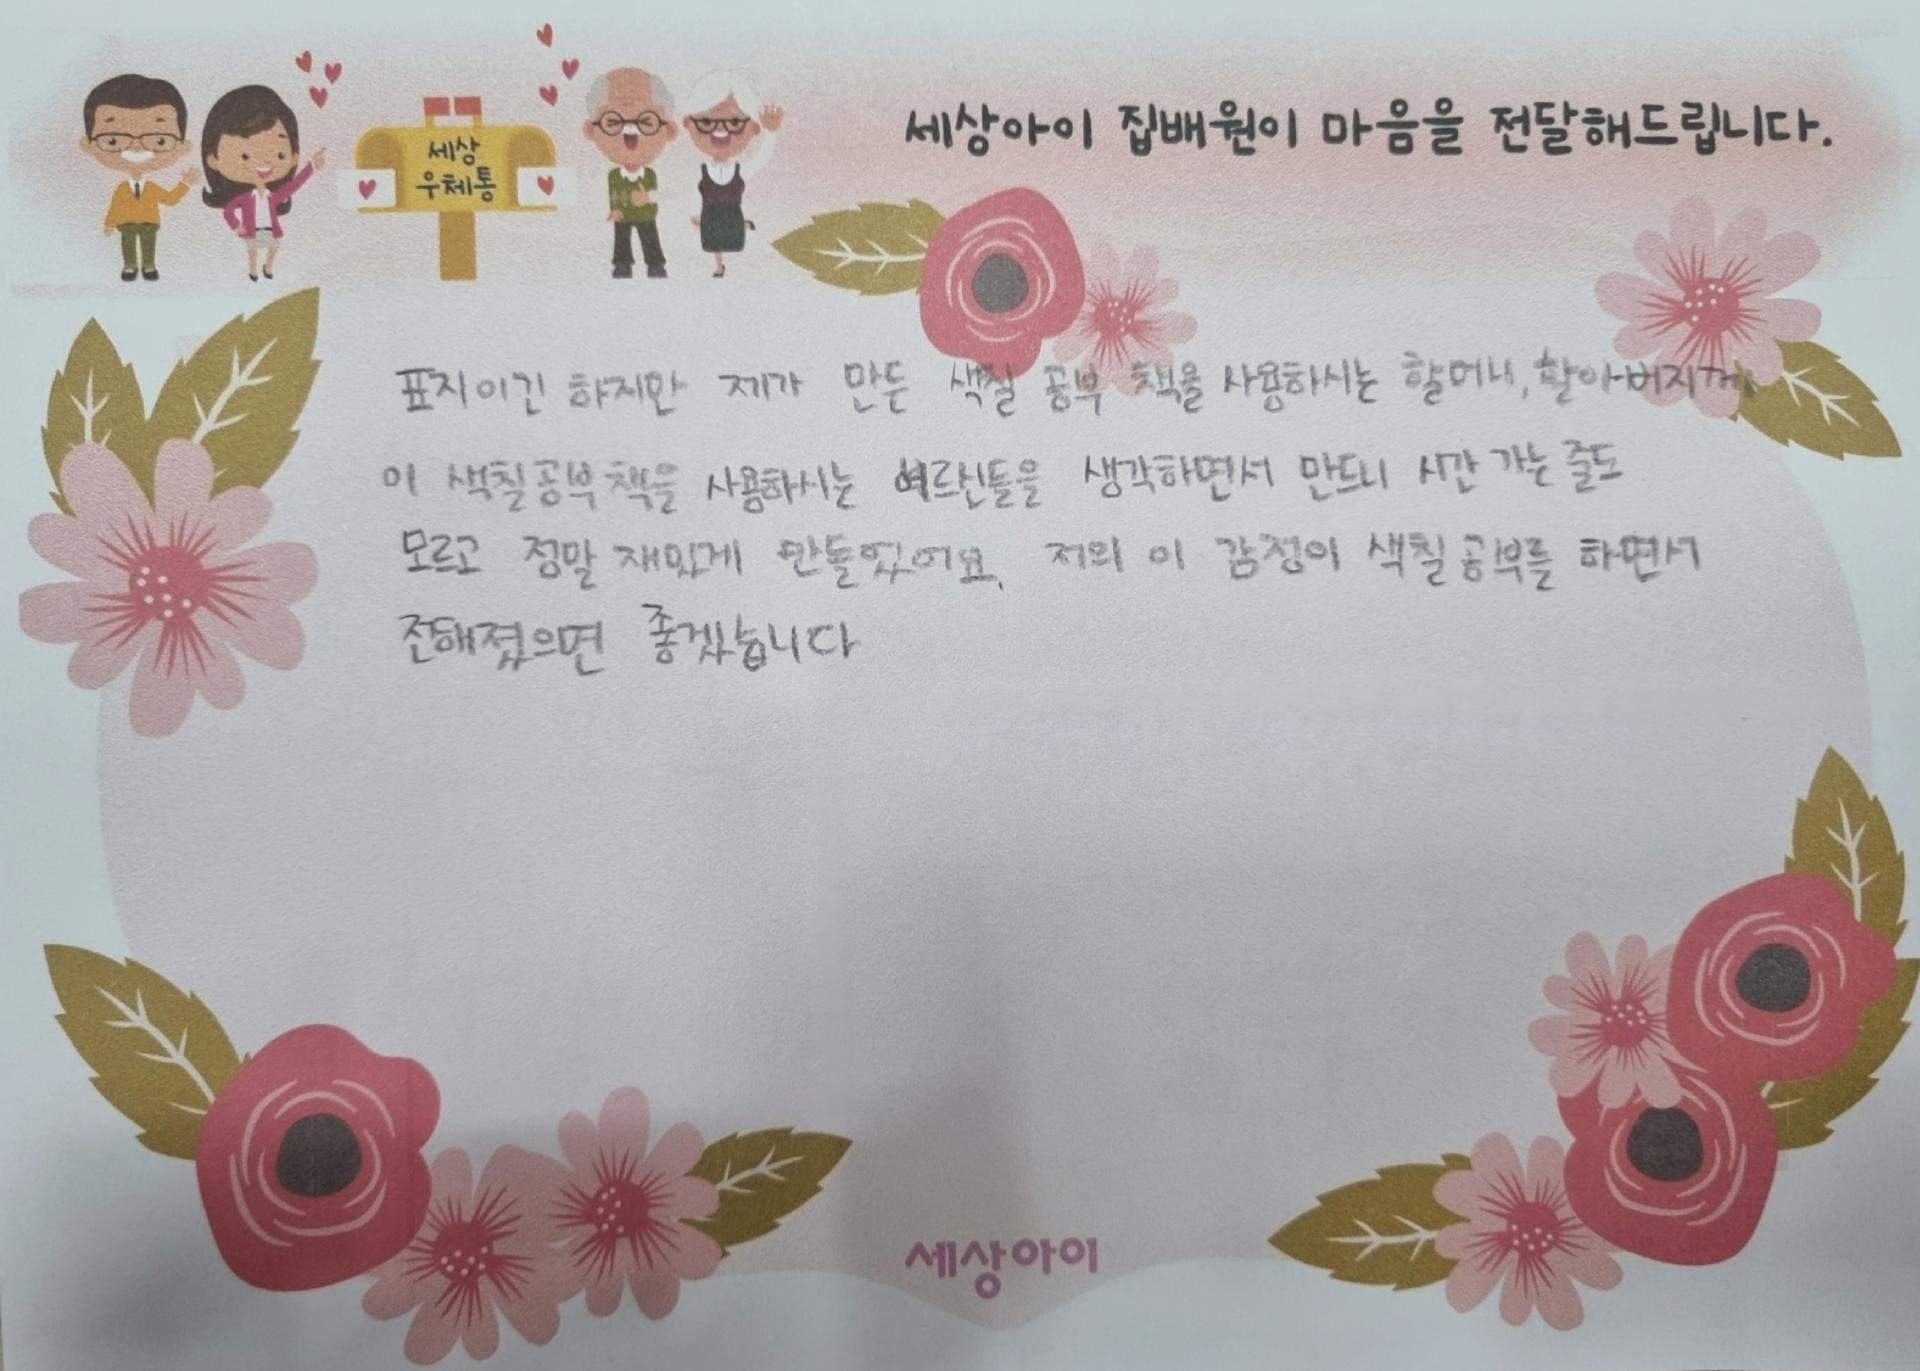 세상아이 집배원이 마음을 전달해드립니다.
세상
우체통
표지이긴 하지만 제가 만든 색칠 공부 책을 사용하시는 할머니, 할아버지께
이 색칠공부책을 사용하시는 어르신들을 생각하면서 만드니 시간 가는 줄도
모르고 정말 재밌게 만들었어요. 저의 이 감정이 색칠공부를 하면서
전해졌으면 좋겠습니다
세상아이